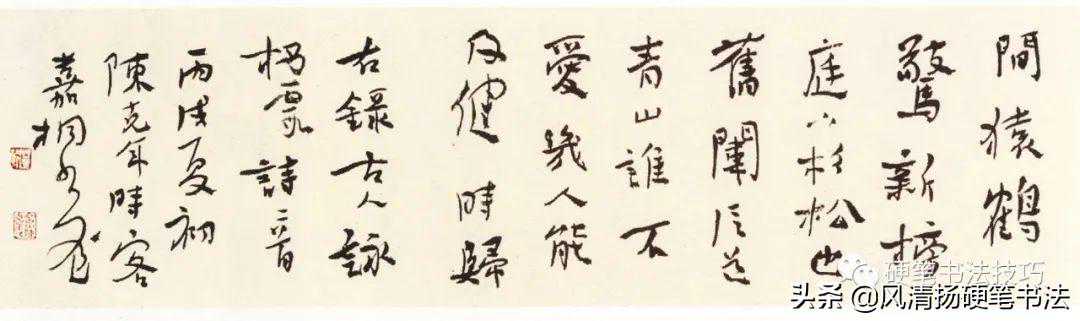 間猿鶴
驚新榜
庭下杉松也
舊蘭信道
青山誰不
愛幾人能
及健時歸
右錄古人詠
栖霞詩二首
丙戌夏初
陳克年時客
嘉桐
硬笔书法技巧
头条 @风清扬硬笔书法